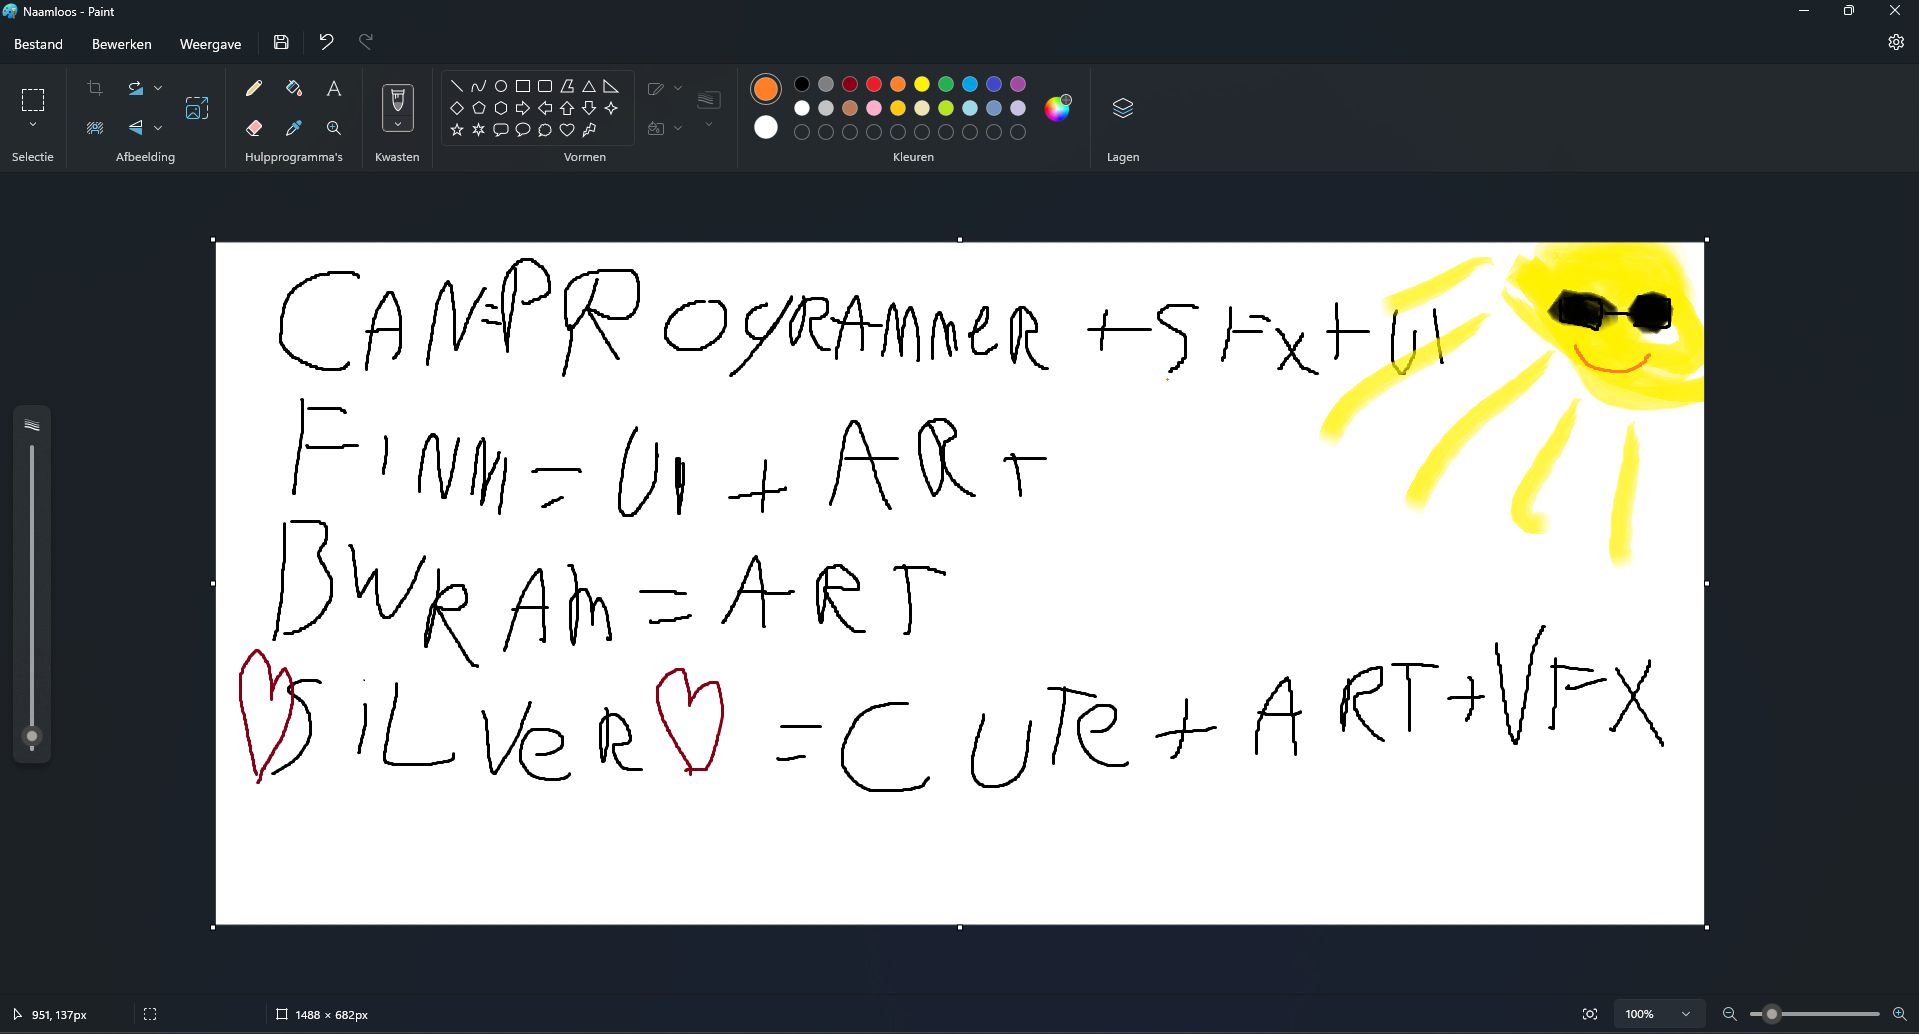 Naamloos - Paint
Bestand Bewerken Weergave
Selectie Afbeelding Hulpprogramma's Kwasten Vormen Kleuren Lagen
CAN=PROGRAMMER + SFX + UI
FINN = UI + ART
BWRAM = ART
SiLVeR = CUTe + ART + VFX
951, 137px 1488 × 682px 100%